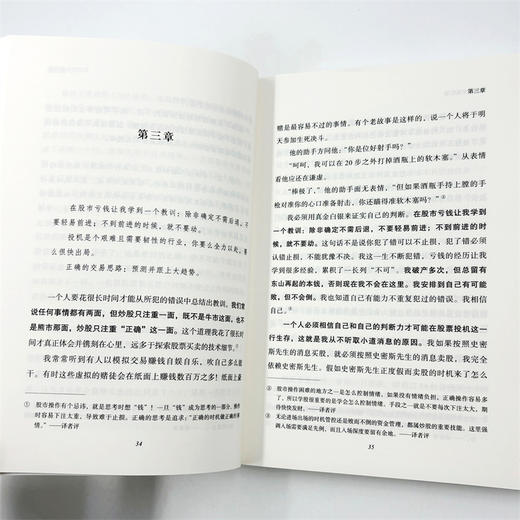 第三章
在股市亏钱让我学到一个教训：除非确定不需后退，不
要轻易前进；不到前进的时候，就不要动。
投机是个艰难且需要韧性的行业，你要么全力以赴，要么
很快出局。
正确的交易思路：预测并跟上大趋势。
一个人要花很长时间才能从所犯的错误中总结出教训。我们常
说任何事情都有两面，但炒股只注重一面，既不是牛市这面，也不
是熊市那面，炒股只注重“正确”这一面。这个道理我花了很长时
间才真正体会并镌刻在心里，远多于探索股票买卖的技术细节。①
我常常听到有人以模拟交易赚钱自娱自乐，吹自己多么能
干。有时这些虚拟的赌徒会在纸面上赚数百万之多！纸面上豪
① 股市操作有个忌讳，就是思考时想“钱”！一旦“钱”成为思考的一部分，操作
时容易下注太重，导致难于止损。正确的思考是追求：“正确的时机做正确的事
情。”——译者评
34
第三章
赌是最容易不过的事情。有个老故事是这样的，说一个人将于明
天参加生死决斗。
他的助手方问他：“你是位好射手吗？”
“呵呵，我可以在 20 步之外打掉酒瓶上的软木塞。”从表情
看他应还在谦虚。
“棒极了，”他的助手面无表情，“但如果酒瓶手持上膛的手
枪对准你的心口准备射击，你还瞄得准软木塞吗？”①
我必须用真金白银来证实自己的判断。在股市亏钱让我学到
一个教训：除非确定不需后退，不要轻易前进；不到前进的时
候，就不要动。这句话不是说你犯错了就可以不止损，犯了错必须
认错止损，不能犹豫不决。我这一生不断犯错，亏钱的经历让我
学到很多经验，累积了一长列“不可”。我破产多次，但总留有
东山再起的本钱，否则现在我不会在这里。我安排到自己有可能
败，但不会倒。我也知道自己有能力不重复犯过的错误。我相信
自己。
一个人必须相信自己和自己的判断力才可能在股票投机这一
行生存，这就是我从不听取小道消息的原因。我如果按照史密斯
先生的消息买股，我就必须按照史密斯先生的消息卖股，我完全
依赖史密斯先生。假如史密斯先生正度假而卖股的时机来了怎么
① 股市操作困难的地方之一是怎么控制情绪，如果没有情绪负担，正确操作容易了
多，所以学股很重要的是学会怎么控制情绪。手段之一就是不要每次下注太大，期
待快快发财。——译者评
② 无论进场出场的时机管控还是败而不倒的资金管理，都属炒股的重要技能。这里强
调入场需要满足先例，而且入场深度要留有余地。——译者评
35